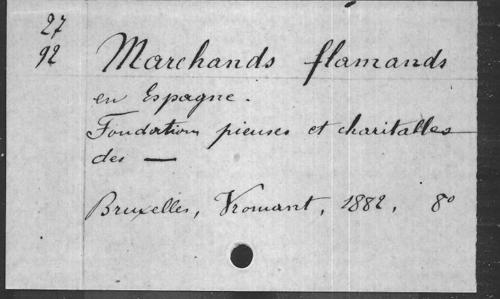 27
92
Marchands flamands
en Espagne.
Fondation pieuses et charitables
des —
Bruxelles, Vromant, 1882, 8°